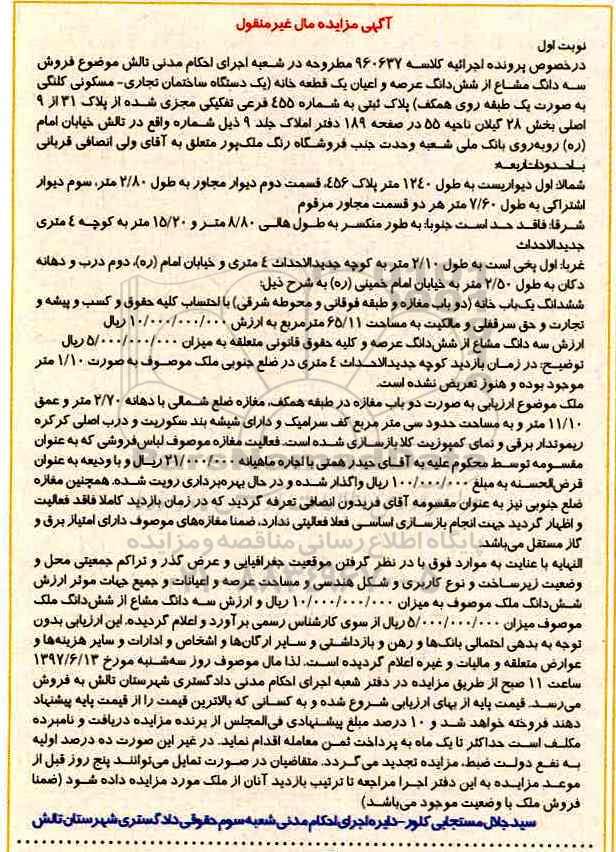 آگهی مزایده مال غیرمنقول
نوبت اول
درخصوص پرونده اجرائیه کلاسه ۹۶۰۶۳۷ مطروحه در شعبه اجرای احکام مدنی تالش موضوع فروش
سه دانگ مشاع از شش‌دانگ عرصه و اعیان یک قطعه خانه (یک دستگاه ساختمان تجاری- مسکونی کلنگی
به صورت یک طبقه روی همکف) پلاک ثبتی به شماره ۴۵۵ فرعی تفکیکی مجزی شده از پلاک ۳۱ از ۹
اصلی بخش ۲۸ گیلان ناحیه ۵۵ در صفحه ۱۸۹ دفتر املاک جلد ۹ ذیل شماره واقع در تالش خیابان امام
(ره) روبه‌روی بانک ملی شعبه وحدت جنب فروشگاه رنگ ملک‌پور متعلق به آقای ولی انصافی قربانی
با حدودات اربعه:
شمالا: اول دیواریست به طول ۱۲۴۰ متر پلاک ۴۵۶، قسمت دوم دیوار مجاور به طول ۲/۸۰ متر، سوم دیوار
اشتراکی به طول ۷/۶۰ متر هر دو قسمت مجاور مرقوم
شرقا: فاقد حد است جنوبا: به طور منکسر به طول هالی ۸/۸۰ متر و ۱۵/۲۰ متر به کوچه ۴ متری
جدیدالاحداث
غربا: اول پخی است به طول ۲/۱۰ متر به کوچه جدیدالاحداث ۴ متری و خیابان امام (ره)، دوم درب و دهانه
دکان به طول ۲/۵۰ متر به خیابان امام خمینی (ره) به شرح ذیل:
ششدانگ یک‌باب خانه (دو باب مغازه و طبقه فوقانی و محوطه شرقی) با احتساب کلیه حقوق و کسب و پیشه و
تجارت و حق سرقفلی و مالکیت به مساحت ۶۵/۱۱ مترمربع به ارزش ۱۰/۰۰۰/۰۰۰/۰۰۰ ریال
ارزش سه دانگ مشاع از شش‌دانگ عرصه و کلیه حقوق قانونی متعلقه به میزان ۵/۰۰۰/۰۰۰/۰۰۰ ریال
توضیح: در زمان بازدید کوچه جدیدالاحداث ۴ متری در ضلع جنوبی ملک موصوف به صورت ۱/۱۰ متر
موجود بوده و هنوز تعریض نشده است.
ملک موضوع ارزیابی به صورت دو باب مغازه در طبقه همکف، مغازه ضلع شمالی با دهانه ۲/۷۰ متر و عمق
۱۱/۱۰ متر و به مساحت حدود سی متر مربع کف سرامیک و دارای شیشه بند سکوریت و درب اصلی کرکره
ریموتدار برقی و نمای کمپوزیت کلا بازسازی شده است. فعالیت مغازه موصوف لباس‌فروشی که به عنوان
مقسومه توسط محکوم علیه به آقای حیدر همتی با اجاره ماهیانه ۲۱/۰۰۰/۰۰۰ ریال و با ودیعه به عنوان
قرض‌الحسنه به مبلغ ۱۰۰/۰۰۰/۰۰۰ ریال واگذار شده و در حال بهره‌برداری رویت شده. همچنین مغازه
ضلع جنوبی نیز به عنوان مقسومه آقای فریدون انصافی تعرفه گردید که در زمان بازدید کاملا فاقد فعالیت
و اظهار گردید جهت انجام بازسازی اساسی فعلا فعالیتی ندارد، ضمنا مغازه‌های موصوف دارای امتیاز برق و
گاز مستقل می‌باشد.
النهایه با عنایت به موارد فوق با در نظر گرفتن موقعیت جغرافیایی و عرض گذر و تراکم جمعیتی محل و
وضعیت زیرساخت و نوع کاربری و شکل هندسی و مساحت عرصه و اعیانات و جمیع جهات موثر ارزش
شش‌دانگ ملک موصوف به میزان ۱۰/۰۰۰/۰۰۰/۰۰۰ ریال و ارزش سه دانگ مشاع از شش‌دانگ ملک
موصوف میزان ۵/۰۰۰/۰۰۰/۰۰۰ ریال از سوی کارشناس رسمی برآورد و اعلام گردیده. این ارزیابی بدون
توجه به بدهی احتمالی بانک‌ها و رهن و بازداشتی و سایر ارگان‌ها و اشخاص و ادارات و سایر هزینه‌ها و
عوارض متعلقه و مالیات و غیره اعلام گردیده است. لذا مال موصوف روز سه‌شنبه مورخ ۱۳۹۷/۶/۱۳
ساعت ۱۱ صبح از طریق مزایده در دفتر شعبه اجرای احکام مدنی دادگستری شهرستان تالش به فروش
می‌رسد. قیمت پایه از بهای ارزیابی شروع شده و به کسانی که بالاترین قیمت را از قیمت پایه پیشنهاد
دهند فروخته خواهد شد و ۱۰ درصد مبلغ پیشنهادی فی‌المجلس از برنده مزایده دریافت و نامبرده
مکلف است حداکثر تا یک ماه به پرداخت ثمن معامله اقدام نماید. در غیر این صورت ده درصد اولیه
به نفع دولت ضبط، مزایده تجدید می‌گردد. متقاضیان در صورت تمایل می‌توانند پنج روز قبل از
موعد مزایده به این دفتر اجرا مراجعه تا ترتیب بازدید آنان از ملک مورد مزایده داده شود (ضمنا
فروش ملک با وضعیت موجود می‌باشد)
سید جلال مستجابی کلور - دایره اجرای احکام مدنی شعبه سوم حقوقی دادگستری شهرستان تالش
پایگاه اطلاع رسانی مناقصه و مزایده